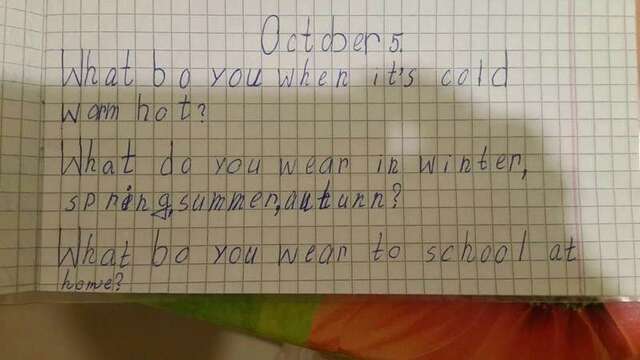 October 5.
What bo you when it's cold
warm hot?
What do you wear in winter,
spring, summer, autunn?
What bo you wear to school at
home?